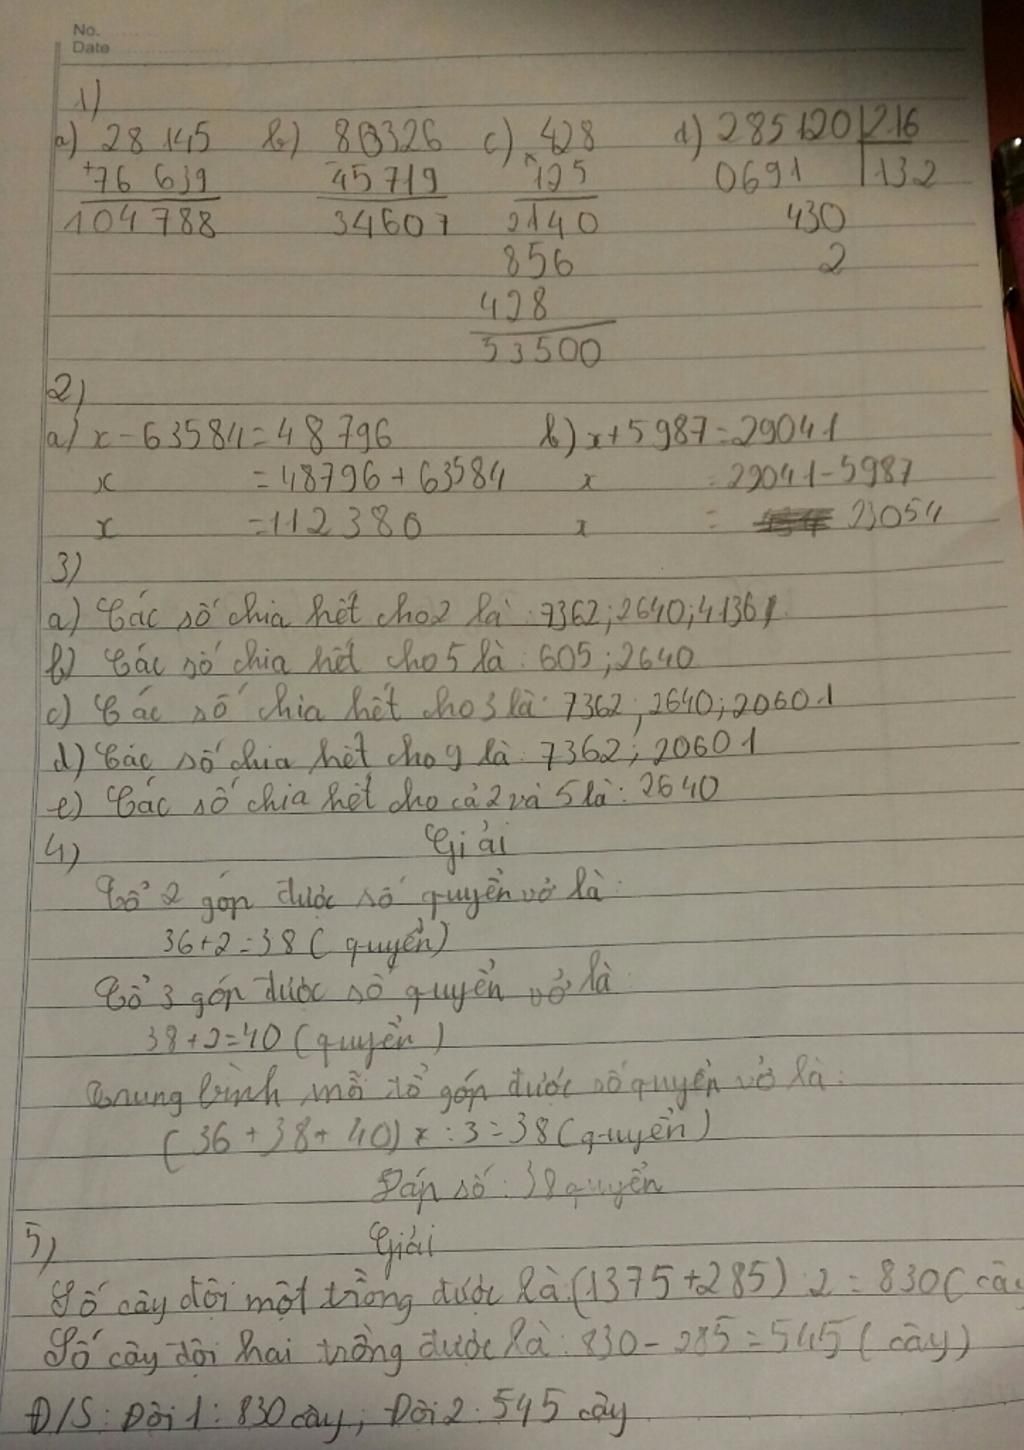 No.
Date
1)
a) 28 145 b) 80326 c) 428 d) 285120 216
+76 639 -45719 ×125 0691 132
104 788 34607 2140 430
856 2
428
53500
2)
a) x - 63584 = 48 796 b) x + 5 987 = 29041
x = 48796 + 63584 x = 29041 - 5987
x = 112 380 x = 23054
3)
a) Các số chia hết cho 2 là : 7362 ; 2640 ; 4136
b) Các số chia hết cho 5 là : 605 ; 2640
c) Các số chia hết cho 3 là : 7362 ; 2640 ; 20601
d) Các số chia hết cho 9 là : 7362 ; 20601
e) Các số chia hết cho cả 2 và 5 là : 2640
4) Giải
Tổ 2 góp được số quyển vở là :
36 + 2 = 38 ( quyển )
Tổ 3 góp được số quyển vở là
38 + 2 = 40 ( quyển )
Trung bình mỗi tổ góp được số quyển vở là :
( 36 + 38 + 40 ) : 3 = 38 ( quyển )
Đáp số : 38 quyển
5) Giải
Số cây đội một trồng được là : (1375 + 285) : 2 = 830 ( cây
Số cây đội hai trồng được là : 830 - 285 = 545 ( cây )
Đ/S : Đội 1 : 830 cây ; Đội 2 : 545 cây